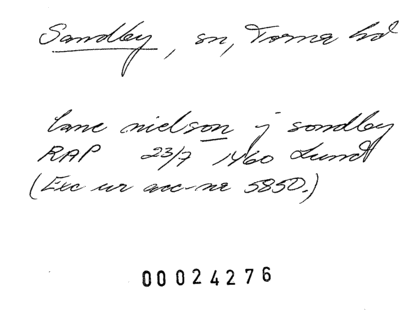 Sandby, sn, Torna hd
lanc nielson j sondby
RAP 23/7 1460 Lund
(Exc ur acc-nr 5850.)
00024276